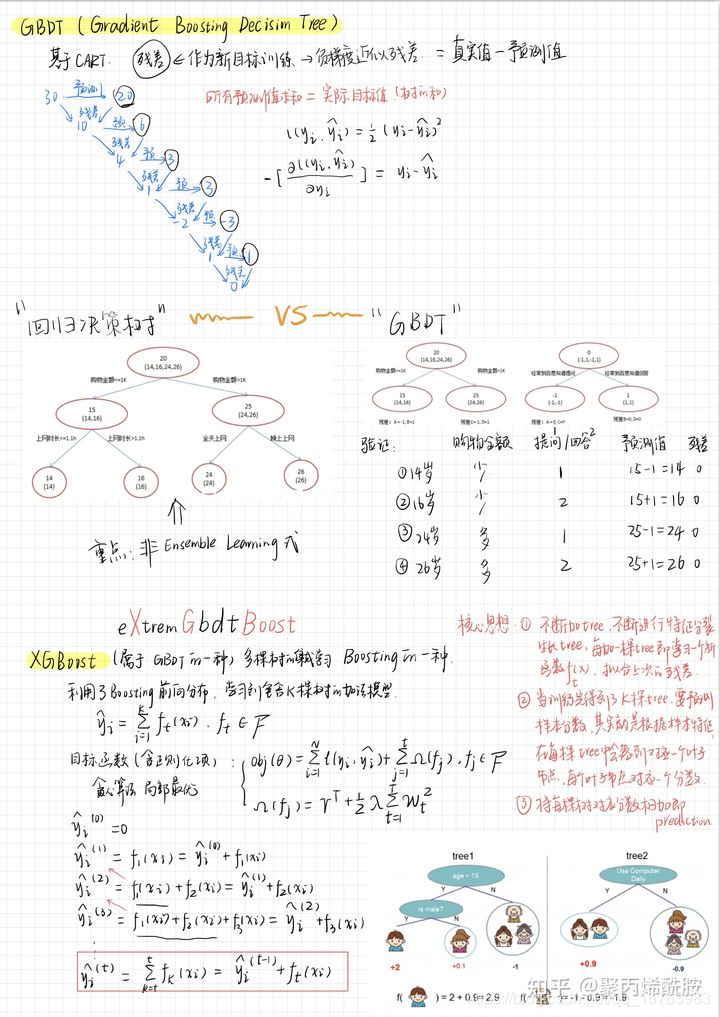 GBDT ( Gradient Boosting Decision Tree )
基于CART. 残差 ← 作为新目标训练 → 负梯度近似残差 = 真实值 - 预测值
所有预测值求和 = 实际目标值 (树的和)
30 预测 20
残差
10 预 6
残差
4 预 3
残差
1 预 3
残差
-2 预 -3
残差
1 预 1
残差
0
l(yi, ŷi) = ½ (yi - ŷi)²
-[ ∂l(yi, ŷi) / ∂yi ] = yi - ŷi
"回归决策树" VS "GBDT"
20
(14,16,24,26)
购物金额<=1K 购物金额>1K
15
(14,16)
25
(24,26)
上网时长<=1.1h 上网时长>1.1h 全天上网 晚上上网
14
(14)
16
(16)
24
(24)
26
(26)
重点: 非 Ensemble Learning 式
20
(14,16,24,26)
购物金额<=1K 购物金额>1K
15
(14,16)
25
(24,26)
残差: A=-1, B=1 残差: C=-1, D=1
0
(-1,1,-1,1)
经常到百度知道提问 经常到百度知道回答
-1
(-1,-1)
1
(1,1)
残差: A=0, C=0 残差B=0, D=0
验证: 购物金额 提问1/回答2 预测值 残差
① 14岁 少 1 15-1=14 0
② 16岁 少 2 15+1=16 0
③ 24岁 多 1 25-1=24 0
④ 26岁 多 2 25+1=26 0
eXtrem Gbdt Boost
XGBoost (属于 GBDT 的一种) 多棵树的集成学习 Boosting 的一种.
利用了Boosting 前向分布, 学习到包含K棵树的加法模型.
ŷi = Σ(i=1, K) ft(xi) . ft ∈ F
目标函数 (含正则化项) :
贪心算法 局部最优
obj(θ) = Σ(i=1, N) l(yi, ŷi) + Σ(j=1, t) Ω(fj) , fj ∈ F
Ω(fj) = γT + ½ λ Σ(t=1, T) Wt²
ŷi(0) = 0
ŷi(1) = f1(xi) = ŷi(0) + f1(xi)
ŷi(2) = f1(xi) + f2(xi) = ŷi(1) + f2(xi)
ŷi(3) = f1(xi) + f2(xi) + f3(xi) = ŷi(2) + f3(xi)
ŷi(t) = Σ(k=t, t) fk(xi) = ŷi(t-1) + ft(xi)
核心思想: ① 不断加tree, 不断进行特征分裂
生长tree, 每加一棵tree即学习一个新
函数ft(x), 拟合上次的残差.
② 当训练完得到了K棵tree, 要预测
样本分数, 其实就是根据样本特征,
在每棵tree中会落到对应一个叶子
节点, 每个叶子节点对应一个分数.
③ 将每棵树对应分数相加即
prediction
tree1
age < 15
Y N
is male?
Y N
+2 +0.1 -1
tree2
Use Computer
Daily
Y N
+0.9 -0.9
f( ) = 2 + 0.9 = 2.9 f( ) = -1 - 0.9 = -1.9
知乎 @聚丙烯酰胺